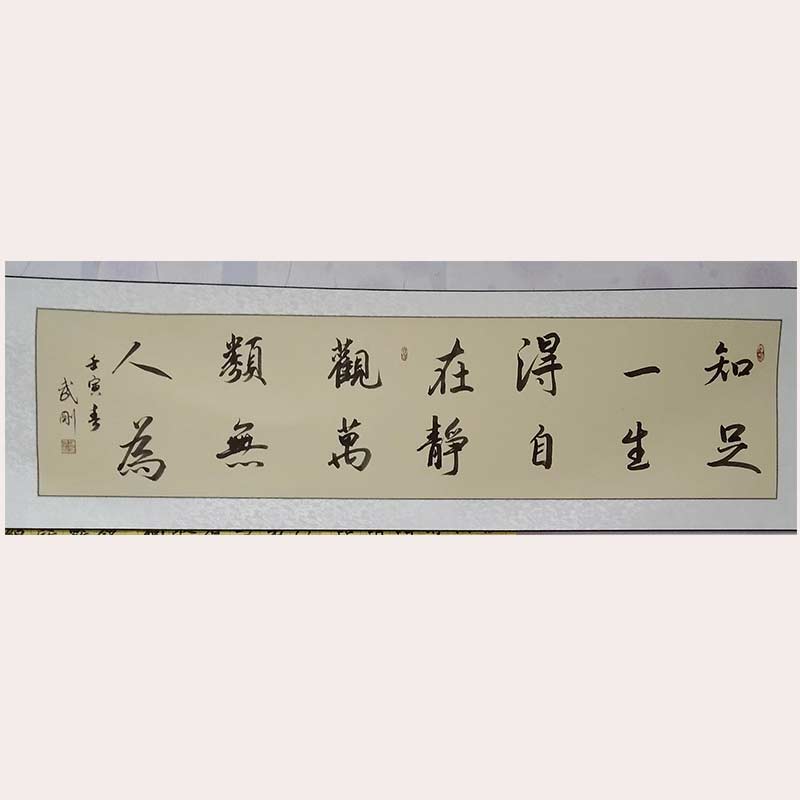 知足
一生
得自
在靜
觀萬
類無
人為
壬寅春
武刚